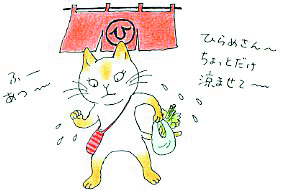 ひ
ひらめさん〜
ちょっとだけ
涼ませて〜
ふー
あつ〜